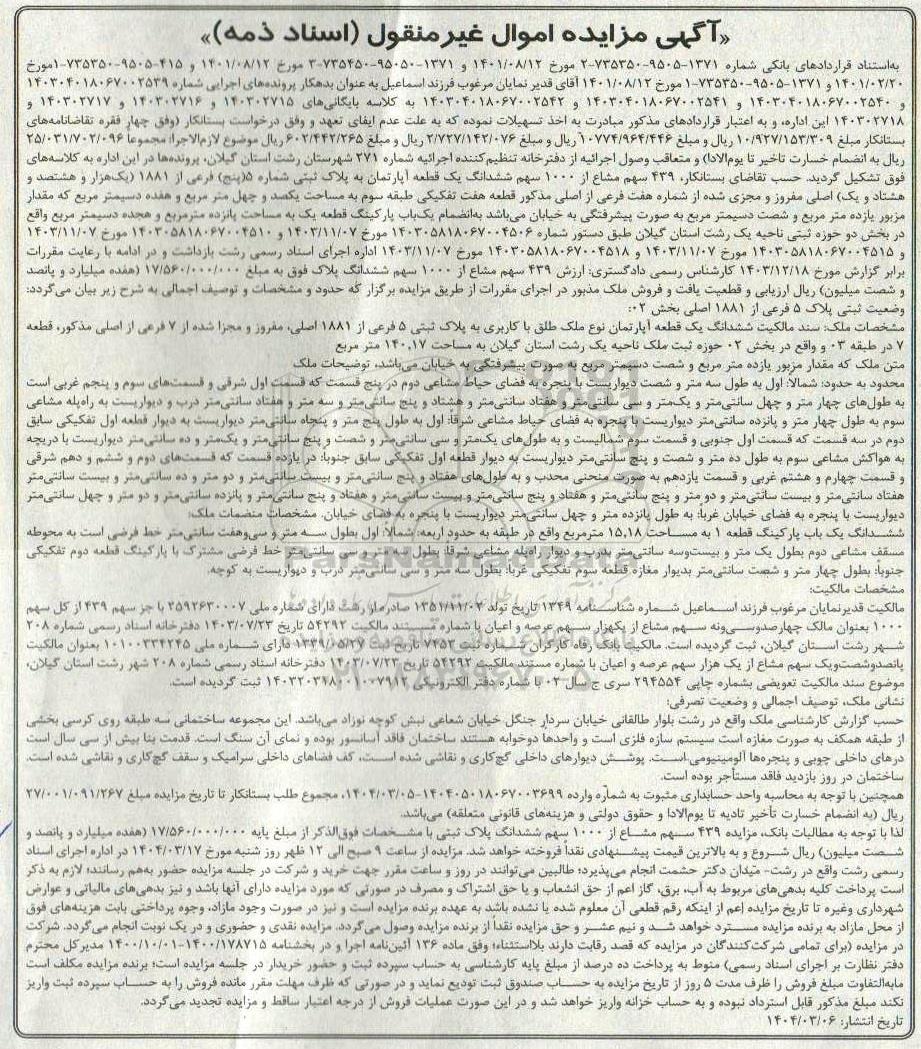 «آگهی مزایده اموال غیرمنقول (اسناد ذمه)»
به‌استناد قراردادهای بانکی شماره ۱۳۷۱-۹۵۰۵-۷۳۵۳۵۰-۲ مورخ ۱۴۰۱/۰۸/۱۲ و ۱۳۷۱-۹۵۰۵۰-۷۳۵۴۵۰-۳ مورخ ۱۴۰۱/۰۸/۱۲ و ۴۱۵-۹۵۰۵-۷۳۵۳۵۰-۱مورخ
۱۴۰۱/۰۲/۲۰ و ۱۳۷۱-۹۵۰۵-۷۳۵۳۵۰-۱ مورخ ۱۴۰۱/۰۸/۱۲ آقای قدیر نمایان مرغوب فرزند اسماعیل به عنوان بدهکار پرونده‌های اجرایی شماره ۱۴۰۳۰۴۰۱۸۰۶۷۰۰۲۵۳۹
و ۱۴۰۳۰۴۰۱۸۰۶۷۰۰۲۵۴۰ و ۱۴۰۳۰۴۰۱۸۰۶۷۰۰۲۵۴۱ و ۱۴۰۳۰۴۰۱۸۰۶۷۰۰۲۵۴۲ به کلاسه بایگانی‌های ۱۴۰۳۰۲۷۱۵ و ۱۴۰۳۰۲۷۱۶ و ۱۴۰۳۰۲۷۱۷ و
۱۴۰۳۰۲۷۱۸ این اداره، و به اعتبار قراردادهای مذکور مبادرت به اخذ تسهیلات نموده که به علت عدم ایفای تعهد و وفق درخواست بستانکار (وفق چهار فقره تقاضانامه‌های
بستانکار مبلغ ۱۰/۹۲۷/۱۵۳/۳۰۹ ریال و مبلغ ۱۰/۷۷۴/۹۶۴/۴۴۶ ریال و مبلغ ۲/۷۲۷/۱۴۲/۰۷۶ ریال و مبلغ ۶۰۲/۴۴۲/۲۶۵ ریال موضوع لازم‌الاجرا: مجموعا ۲۵/۰۳۱/۷۰۲/۰۹۶
ریال به انضمام خسارت تاخیر تا یوم‌الادا) و متعاقب وصول اجرائیه از دفترخانه تنظیم‌کننده اجرائیه شماره ۲۷۱ شهرستان رشت استان گیلان، پرونده‌ها در این اداره به کلاسه‌های
فوق تشکیل گردید. حسب تقاضای بستانکار، ۴۳۹ سهم مشاع از ۱۰۰۰ سهم ششدانگ یک قطعه آپارتمان به پلاک ثبتی شماره ۵(پنج) فرعی از ۱۸۸۱ (یک‌هزار و هشتصد و
هشتاد و یک) اصلی مفروز و مجزی شده از شماره هفت فرعی از اصلی مذکور قطعه هفت تفکیکی طبقه سوم به مساحت یکصد و چهل متر مربع و هفده دسیمتر مربع که مقدار
مزبور یازده متر مربع و شصت دسیمتر مربع به صورت پیشرفتگی به خیابان می‌باشد به‌انضمام یک‌باب پارکینگ قطعه یک به مساحت پانزده مترمربع و هجده دسیمتر مربع واقع
در بخش دو حوزه ثبتی ناحیه یک رشت استان گیلان طبق دستور شماره ۱۴۰۳۰۵۸۱۸۰۶۷۰۰۴۵۰۶ مورخ ۱۴۰۳/۱۱/۰۷ و ۱۴۰۳۰۵۸۱۸۰۶۷۰۰۴۵۱۰ مورخ ۱۴۰۳/۱۱/۰۷
و ۱۴۰۳۰۵۸۱۸۰۶۷۰۰۴۵۱۵ مورخ ۱۴۰۳/۱۱/۰۷ و ۱۴۰۳۰۵۸۱۸۰۶۷۰۰۴۵۱۸ مورخ ۱۴۰۳/۱۱/۰۷ اداره اجرای اسناد رسمی رشت بازداشت و در ادامه با رعایت مقررات
برابر گزارش مورخ ۱۴۰۳/۱۲/۱۸ کارشناس رسمی دادگستری: ارزش ۴۳۹ سهم مشاع از ۱۰۰۰ سهم ششدانگ پلاک فوق به مبلغ ۱۷/۵۶۰/۰۰۰/۰۰۰ (هفده میلیارد و پانصد
و شصت میلیون) ریال ارزیابی و قطعیت یافت و فروش ملک مذبور در اجرای مقررات از طریق مزایده برگزار که حدود و مشخصات و توصیف اجمالی به شرح زیر بیان می‌گردد:
وضعیت ثبتی پلاک ۵ فرعی از ۱۸۸۱ اصلی بخش ۰۲:
مشخصات ملک: سند مالکیت ششدانگ یک قطعه آپارتمان نوع ملک طلق با کاربری به پلاک ثبتی ۵ فرعی از ۱۸۸۱ اصلی، مفروز و مجزا شده از ۷ فرعی از اصلی مذکور، قطعه
۷ در طبقه ۰۳ و واقع در بخش ۰۲ حوزه ثبت ملک ناحیه یک رشت استان گیلان به مساحت ۱۴۰,۱۷ متر مربع
متن ملک که مقدار مزبور یازده متر مربع و شصت دسیمتر مربع به صورت پیشرفتگی به خیابان می‌باشد، توضیحات ملک
محدود به حدود: شمالا: اول به طول سه متر و شصت دیواریست با پنجره به فضای حیاط مشاعی دوم در پنج قسمت که قسمت اول شرقی و قسمت‌های سوم و پنجم غربی است
به طول‌های چهار متر و چهل سانتی‌متر و یک‌متر و سی سانتی‌متر و هفتاد سانتی‌متر و هشتاد و پنج سانتی‌متر و سه متر و هفتاد سانتی‌متر درب و دیواریست به راه‌پله مشاعی
سوم به طول چهار متر و پانزده سانتی‌متر دیواریست با پنجره به فضای حیاط مشاعی شرقا: اول به طول پنج متر و پنجاه سانتی‌متر دیواریست به دیوار قطعه اول تفکیکی سابق
دوم در سه قسمت که قسمت اول جنوبی و قسمت سوم شمالیست و به طول‌های یک‌متر و سی سانتی‌متر و شصت و پنج سانتی‌متر و یک‌متر و ده سانتی‌متر دیواریست با دریچه
به هواکش مشاعی سوم به طول ده متر و شصت و پنج سانتی‌متر دیواریست به دیوار قطعه اول تفکیکی سابق جنوبا: در یازده قسمت که قسمت‌های دوم و ششم و دهم شرقی
و قسمت چهارم و هشتم غربی و قسمت یازدهم به صورت منحنی محدب و به طول‌های هفتاد و پنج سانتی‌متر و بیست سانتی‌متر و دو متر و ده سانتی‌متر و بیست سانتی‌متر
هفتاد سانتی‌متر و بیست سانتی‌متر و دو متر و پنج سانتی‌متر و هفتاد و پنج سانتی‌متر و بیست سانتی‌متر و هفتاد و پنج سانتی‌متر و پانزده سانتی‌متر و دو متر و چهل سانتی‌متر
دیواریست با پنجره به فضای خیابان غربا: به طول پانزده متر و چهل سانتی‌متر دیواریست با پنجره به فضای خیابان. مشخصات منضمات ملک:
ششدانگ یک باب پارکینگ قطعه ۱ به مساحت ۱۵,۱۸ مترمربع واقع در طبقه به حدود اربعه: شمالا: اول بطول سه متر و سی‌وهفت سانتی‌متر خط فرضی است به محوطه
مسقف مشاعی دوم بطول یک متر و بیست‌وسه سانتی‌متر بدرب و دیوار راه‌پله مشاعی شرقا: بطول سه متر و سی سانتی‌متر خط فرضی مشترک با پارکینگ قطعه دوم تفکیکی
جنوبا: بطول چهار متر و شصت سانتی‌متر بدیوار مغازه قطعه سوم تفکیکی غربا: بطول سه متر و سی سانتی‌متر درب و دیواریست به کوچه.
مشخصات مالکیت:
مالکیت قدیرنمایان مرغوب فرزند اسماعیل شماره شناسنامه ۱۳۴۹ تاریخ تولد ۱۳۵۱/۱۱/۰۴ صادره‌از رشت دارای شماره ملی ۲۵۹۲۶۳۰۰۰۷ با جز سهم ۴۳۹ از کل سهم
۱۰۰۰ بعنوان مالک چهارصدوسی‌ونه سهم مشاع از یکهزار سهم عرصه و اعیان با شماره مستند مالکیت ۵۴۲۹۲ تاریخ ۱۴۰۳/۰۷/۲۳ دفترخانه اسناد رسمی شماره ۲۰۸
شهر رشت استان گیلان، ثبت گردیده است. مالکیت بانک رفاه کارگران شماره ثبت ۷۴۵۳ تاریخ ثبت ۱۳۳۹/۰۵/۲۷ دارای شماره ملی ۱۰۱۰۰۳۳۴۲۴۵ بعنوان مالکیت
پانصدوشصت‌ویک سهم مشاع از یک هزار سهم عرصه و اعیان با شماره مستند مالکیت ۵۴۲۹۲ تاریخ ۱۴۰۳/۰۷/۲۳ دفترخانه اسناد رسمی شماره ۲۰۸ شهر رشت استان گیلان،
موضوع سند مالکیت تعویضی بشماره چاپی ۲۹۴۵۵۴ سری ج سال ۰۲ با شماره دفتر الکترونیکی ۱۴۰۳۲۰۳۱۸۰۱۰۰۷۹۱۲ ثبت گردیده است.
نشانی ملک، توصیف اجمالی و وضعیت تصرفی:
حسب گزارش کارشناسی ملک واقع در رشت بلوار طالقانی خیابان سردار جنگل خیابان شعاعی نبش کوچه نوزاد می‌باشد. این مجموعه ساختمانی سه طبقه روی کرسی بخشی
از طبقه همکف به صورت مغازه است سیستم سازه فلزی است و واحدها دوخوابه هستند ساختمان فاقد آسانسور بوده و نمای آن سنگ است. قدمت بنا بیش از سی سال است
درهای داخلی چوبی و پنجره‌ها آلومینیومی است. پوشش دیوارهای داخلی گچ‌کاری و نقاشی شده است، کف فضاهای داخلی سرامیک و سقف گچ‌کاری و نقاشی شده است.
ساختمان در روز بازدید فاقد مستأجر بوده است.
همچنین با توجه به محاسبه واحد حسابداری مثبوت به شماره وارده ۱۴۰۴۰۵۰۱۸۰۶۷۰۰۳۶۹۹-۱۴۰۴/۰۳/۰۵، مجموع طلب بستانکار تا تاریخ مزایده مبلغ ۲۷/۰۰۱/۰۹۱/۲۶۷
ریال (به انضمام خسارت تأخیر تادیه تا یوم‌الادا و حقوق دولتی و هزینه‌های قانونی متعلقه) می‌باشد.
لذا با توجه به مطالبات بانک، مزایده ۴۳۹ سهم مشاع از ۱۰۰۰ سهم ششدانگ پلاک ثبتی با مشخصات فوق‌الذکر از مبلغ پایه ۱۷/۵۶۰/۰۰۰/۰۰۰ (هفده میلیارد و پانصد و
شصت میلیون) ریال شروع و به بالاترین قیمت پیشنهادی نقدا فروخته خواهد شد. مزایده از ساعت ۹ صبح الی ۱۲ ظهر روز شنبه مورخ ۱۴۰۴/۰۳/۱۷ در اداره اجرای اسناد
رسمی رشت واقع در رشت- میدان دکتر حشمت انجام می‌پذیرد؛ طالبین می‌توانند در روز و ساعت مقرر جهت خرید و شرکت در جلسه مزایده حضور به‌هم رسانند؛ لازم به ذکر
است پرداخت کلیه بدهی‌های مربوط به آب، برق، گاز اعم از حق انشعاب و یا حق اشتراک و مصرف در صورتی که مورد مزایده دارای آنها باشد و نیز بدهی‌های مالیاتی و عوارض
شهرداری وغیره تا تاریخ مزایده اعم از اینکه رقم قطعی آن معلوم شده یا نشده باشد به عهده برنده مزایده است و نیز در صورت وجود مازاد، وجوه پرداختی بابت هزینه‌های فوق
از محل مازاد به برنده مزایده مسترد خواهد شد و نیم عشر و حق مزایده نقداً از برنده مزایده وصول می‌گردد. مزایده نقدی و حضوری و در یک نوبت انجام می‌گردد. شرکت
در مزایده (برای تمامی شرکت‌کنندگان در مزایده که قصد رقابت دارند بلااستثناء؛ وفق ماده ۱۳۶ آئین‌نامه اجرا و در بخشنامه ۱۴۰۰/۱۷۸۷۱۵-۱۴۰۰/۱۰/۰۱ مدیرکل محترم
دفتر نظارت بر اجرای اسناد رسمی) منوط به پرداخت ده درصد از مبلغ پایه کارشناسی به حساب سپرده ثبت و حضور خریدار در جلسه مزایده است؛ برنده مزایده مکلف است
مابه‌التفاوت مبلغ فروش را ظرف مدت ۵ روز از تاریخ مزایده به حساب صندوق ثبت تودیع نماید و در صورتی که ظرف مهلت مقرر مانده فروش را به حساب سپرده ثبت واریز
نکند مبلغ مذکور قابل استرداد نبوده و به حساب خزانه واریز خواهد شد و در این صورت عملیات فروش از درجه اعتبار ساقط و مزایده تجدید می‌گردد.
تاریخ انتشار: ۱۴۰۴/۰۳/۰۶